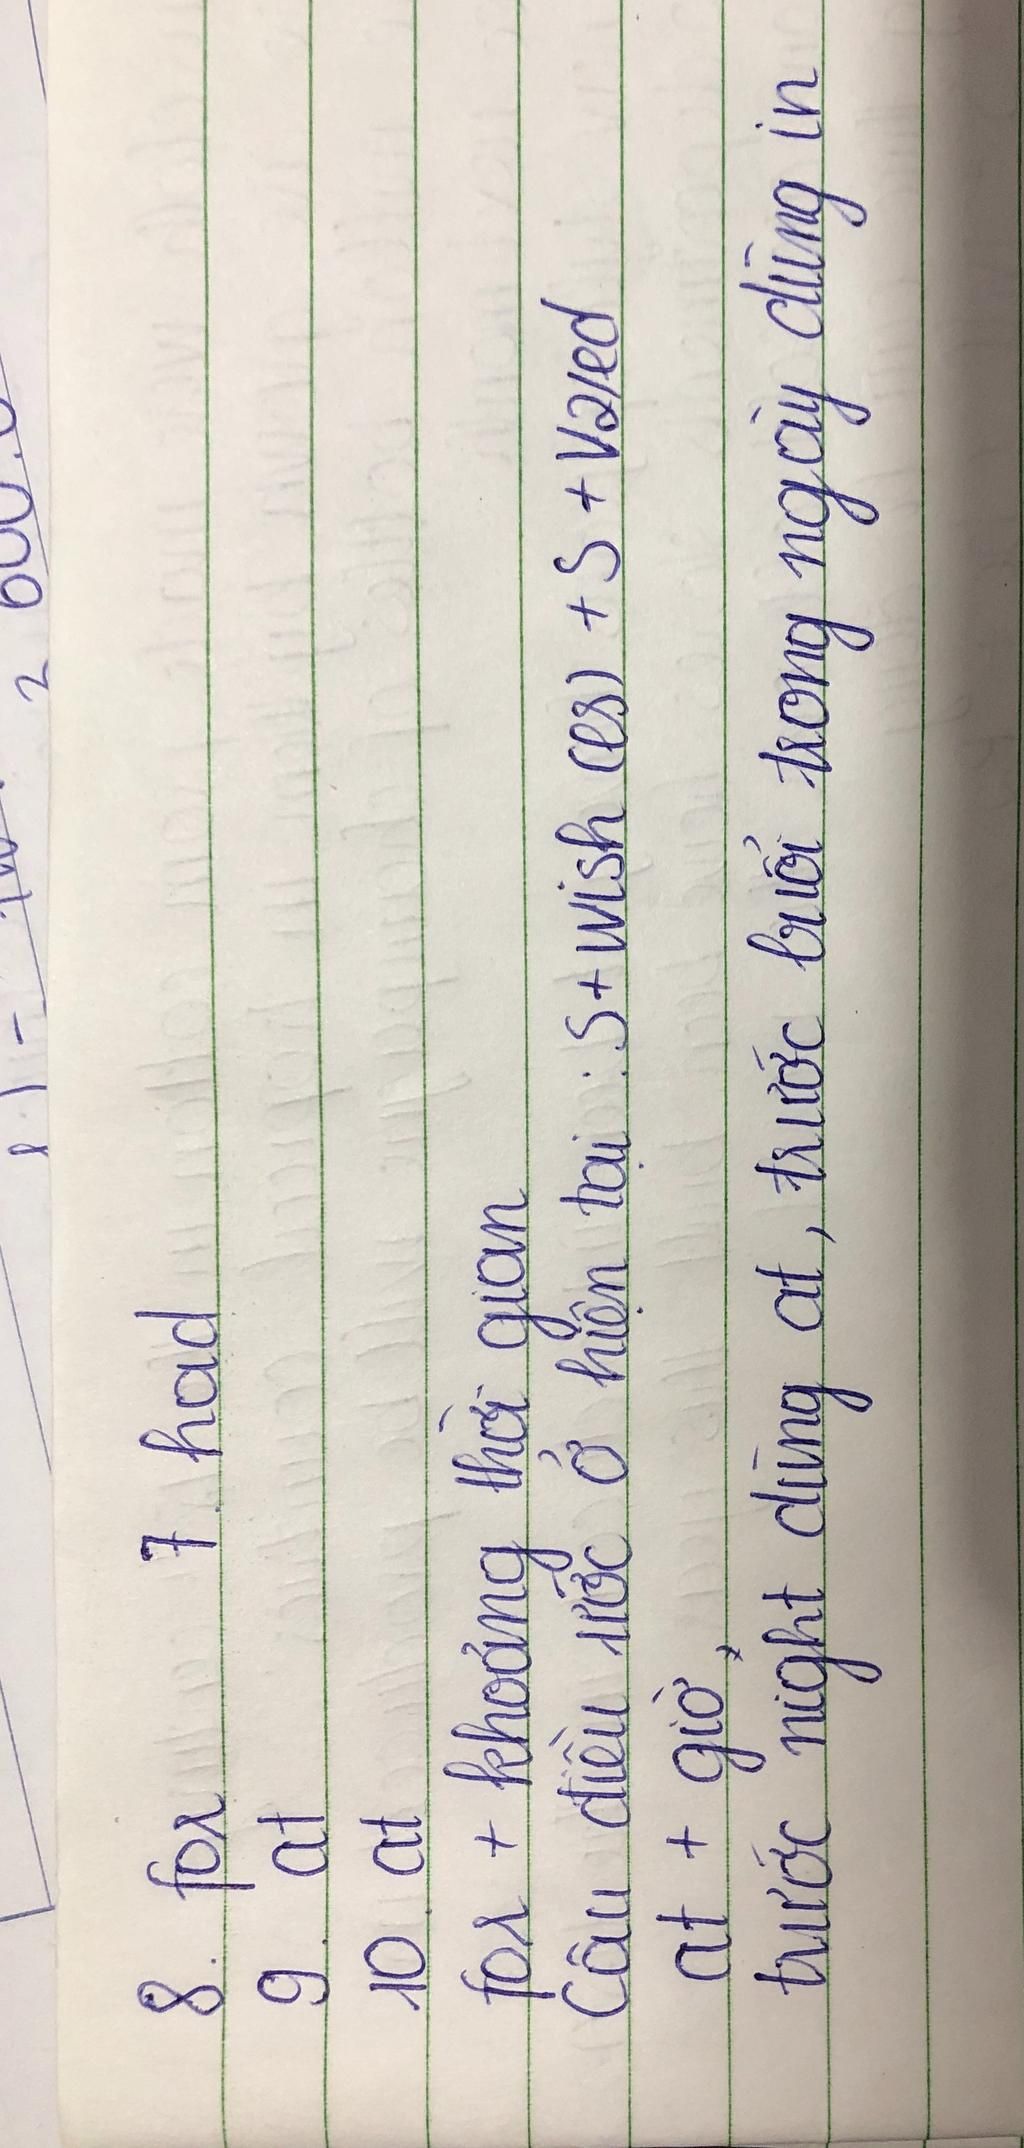 8. for 7. had
9. at
10 at
for + khoảng thời gian
Câu điều ước ở hiện tại : S + wish (es) + S + V2/ed
at + giờ,
trước night dùng at, trước buổi trong ngày dùng in